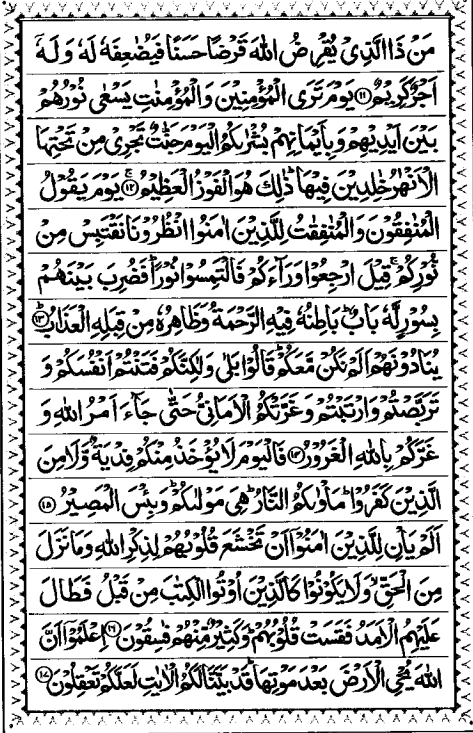 مَنْ ذَا الَّذِیْ یُقْرِضُ اللّٰهَ قَرْضًا حَسَنًا فَیُضٰعِفَهٗ لَهٗ وَ لَهٗۤ
اَجْرٌ كَرِیْمٌ ۝۱۱ یَوْمَ تَرَی الْمُؤْمِنِیْنَ وَ الْمُؤْمِنٰتِ یَسْعٰی نُوْرُهُمْ
بَیْنَ اَیْدِیْهِمْ وَ بِاَیْمَانِهِمْ بُشْرٰىكُمُ الْیَوْمَ جَنّٰتٌ تَجْرِیْ مِنْ تَحْتِهَا
الْاَنْهٰرُ خٰلِدِیْنَ فِیْهَا ؕ ذٰلِكَ هُوَ الْفَوْزُ الْعَظِیْمُ ۝۱۲ یَوْمَ یَقُوْلُ
الْمُنٰفِقُوْنَ وَ الْمُنٰفِقٰتُ لِلَّذِیْنَ اٰمَنُوا انْظُرُوْنَا نَقْتَبِسْ مِنْ
نُّوْرِكُمْ ۚ قِیْلَ ارْجِعُوْا وَرَآءَكُمْ فَالْتَمِسُوْا نُوْرًا ؕ فَضُرِبَ بَیْنَهُمْ
بِسُوْرٍ لَّهٗ بَابٌ ؕ بَاطِنُهٗ فِیْهِ الرَّحْمَةُ وَ ظَاهِرُهٗ مِنْ قِبَلِهِ الْعَذَابُ ؕ۝۱۳
یُنَادُوْنَهُمْ اَلَمْ نَكُنْ مَّعَكُمْ ؕ قَالُوْا بَلٰی وَ لٰكِنَّكُمْ فَتَنْتُمْ اَنْفُسَكُمْ وَ
تَرَبَّصْتُمْ وَ ارْتَبْتُمْ وَ غَرَّتْكُمُ الْاَمَانِیُّ حَتّٰی جَآءَ اَمْرُ اللّٰهِ وَ
غَرَّكُمْ بِاللّٰهِ الْغَرُوْرُ ۝۱۴ فَالْیَوْمَ لَا یُؤْخَذُ مِنْكُمْ فِدْیَةٌ وَّ لَا مِنَ
الَّذِیْنَ كَفَرُوْا ؕ مَاْوٰىكُمُ النَّارُ ؕ هِیَ مَوْلٰىكُمْ ؕ وَ بِئْسَ الْمَصِیْرُ ۝۱۵
اَلَمْ یَاْنِ لِلَّذِیْنَ اٰمَنُوْۤا اَنْ تَخْشَعَ قُلُوْبُهُمْ لِذِكْرِ اللّٰهِ وَ مَا نَزَلَ
مِنَ الْحَقِّ ۙ وَ لَا یَكُوْنُوْا كَالَّذِیْنَ اُوْتُوا الْكِتٰبَ مِنْ قَبْلُ فَطَالَ
عَلَیْهِمُ الْاَمَدُ فَقَسَتْ قُلُوْبُهُمْ ؕ وَ كَثِیْرٌ مِّنْهُمْ فٰسِقُوْنَ ۝۱۶ اِعْلَمُوْۤا اَنَّ
اللّٰهَ یُحْیِ الْاَرْضَ بَعْدَ مَوْتِهَا ؕ قَدْ بَیَّنَّا لَكُمُ الْاٰیٰتِ لَعَلَّكُمْ تَعْقِلُوْنَ ۝۱۷